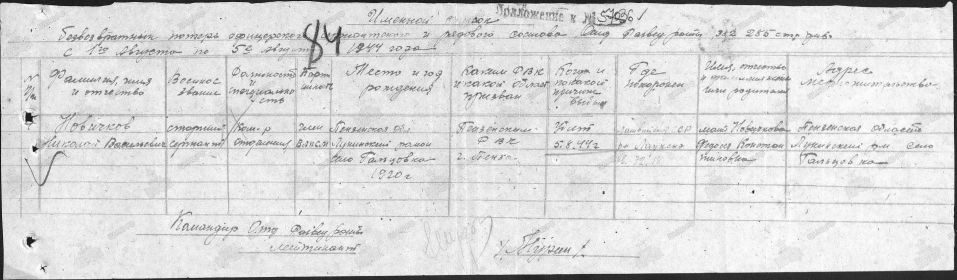 Именной список
Приложение к №
безвозвратных потерь офицерского сержантского и рядового состава Отд Развед роты 285 стр див
с 1го августа по 5е август 1944 года
84
№ п/п Фамилия, имя и отчество Военное звание Должность и специальность Парт Место и год рождения Каким РВК и какой области призван Когда и по какой причине выбыл Где похоронен Имя, отчество и фамилия жены или родителей Адрес местожительства
Новичков старший Ком-р член Пензенская обл Пензенским Убит мать Новичкова Пензенская область
Николай Васильевич сержант Отделения ВЛКСМ Лунинский район РВК 5.8.44г Федосья Константиновна Лунинский р-н село
село Гольцовка г. Пенза Гольцовка
1920 г
Командир Отд Развед роты
лейтенант